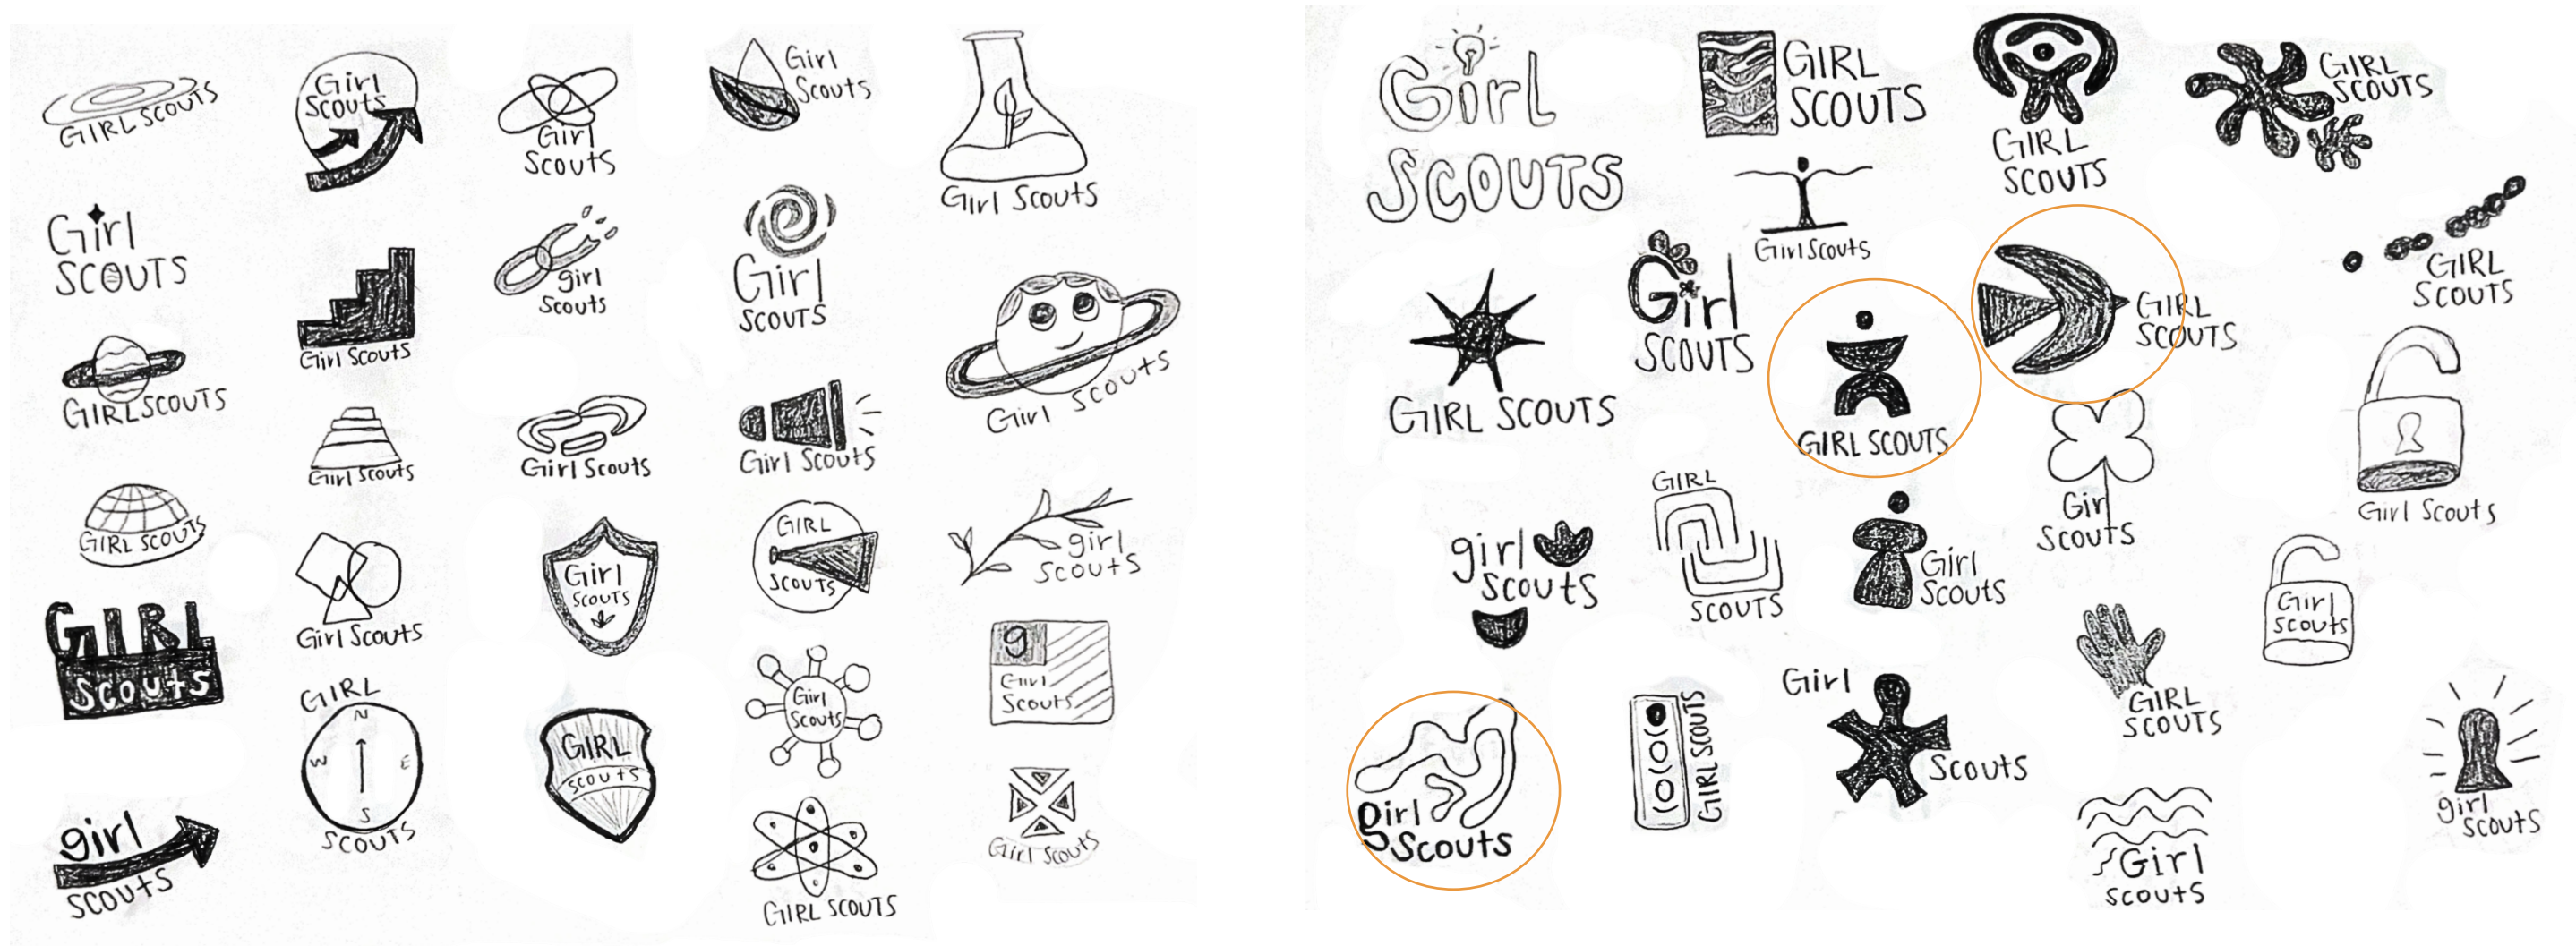 GIRL SCOUTS
Girl
SCOUTS
GIRLSCOUTS
GIRL SCOUTS
GIRL
SCOUTS
girl
SCOUTS
Girl
Scouts
Girl Scouts
Girl Scouts
Girl Scouts
GIRL
N
W E
S
SCOUTS
Girl
Scouts
girl
Scouts
Girl Scouts
Girl
SCOUTS
GIRL
SCOUTS
Girl
Scouts
Girl
SCOUTS
Girl Scouts
GIRL
SCOUTS
Girl
Scouts
GIRL SCOUTS
Girl Scouts
Girl Scouts
girl
Scouts
g
Girl
Scouts
Girl Scouts
Girl
SCOUTS
GIRL
SCOUTS
GIRL
SCOUTS
GIRL
SCOUTS
Girl Scouts
GIRL SCOUTS
Girl
SCOUTS
GIRL SCOUTS
GIRL
SCOUTS
GIRL
SCOUTS
girl
scouts
GIRL
SCOUTS
Girl
Scouts
Girl
Scouts
Girl Scouts
girl
Scouts
GIRL SCOUTS
Girl
Scouts
GIRL
SCOUTS
Girl
Scouts
Girl
scouts
girl
scouts